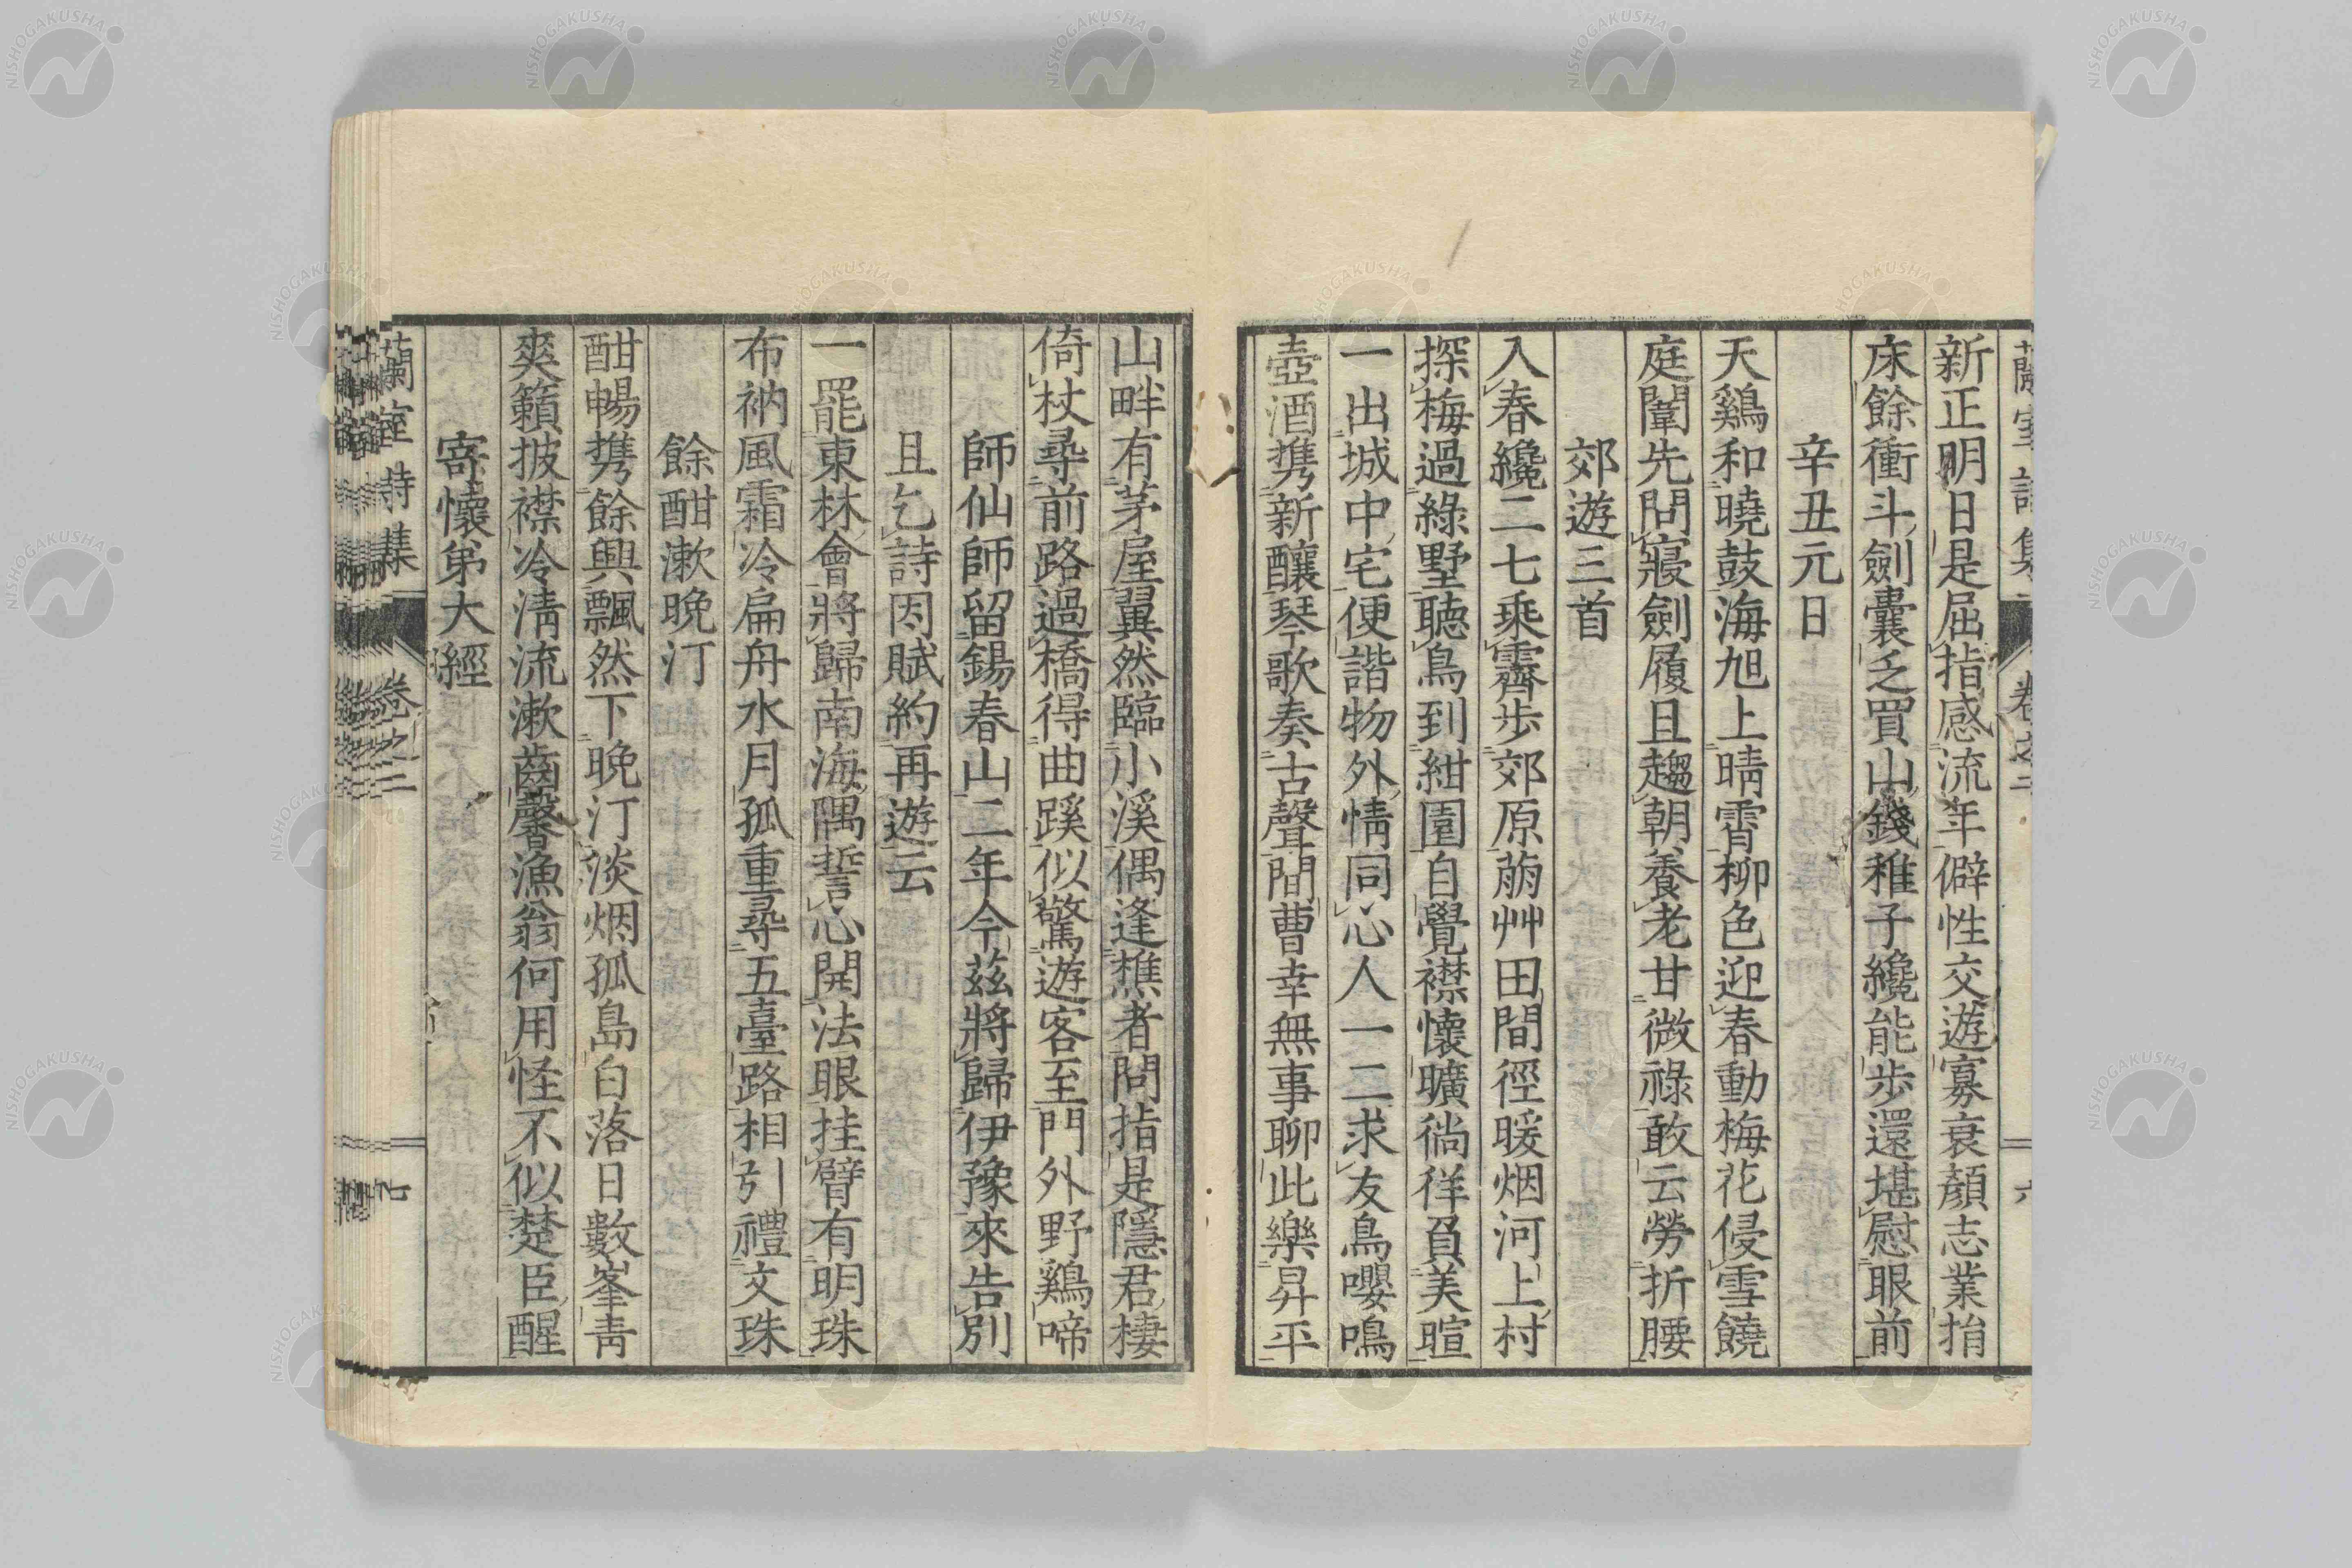 新正明日是屈指感流年僻性交遊寡衰顏志業捐
床餘衝斗劍囊乏買山錢稚子纔能步還堪慰眼前
辛丑元日
天鷄和曉鼓海旭上晴霄柳色迎春動梅花侵雪饒
庭闈先問寢劍履且趨朝養老甘微祿敢云勞折腰
郊遊三首
入春纔二七乘霽步郊原萠艸田間徑暖烟河上村
探梅過綠墅聽鳥到紺園自覺襟懷曠徜徉負美暄
一出城中宅便諧物外情同心人一二求友鳥嚶鳴
壺酒携新釀琴歌奏古聲間曹幸無事聊此樂昇平
山畔有茅屋翼然臨小溪偶逢樵者問指是隱君棲
倚杖尋前路過橋得曲蹊似驚遊客至門外野鷄啼
師仙師留錫春山二年今茲將歸伊豫來告別
且乞詩因賦約再遊云
一罷東林會將歸南海隅誓心開法眼挂臂有明珠
布衲風霜冷扁舟水月孤重尋五臺路相引禮文珠
餘酣漱晚汀
酣暢携餘興飄然下晚汀淡烟孤島白落日數峯青
爽籟披襟冷清流漱齒馨漁翁何用怪不似楚臣醒
寄懷弟大經
蘭室詩集 卷之二 七
NISHOGAKUSHA